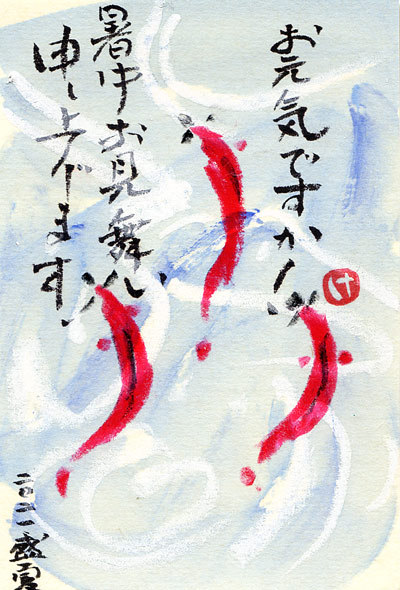 お元気ですか!
け
暑中お見舞い
申し上げます
二〇一一盛夏